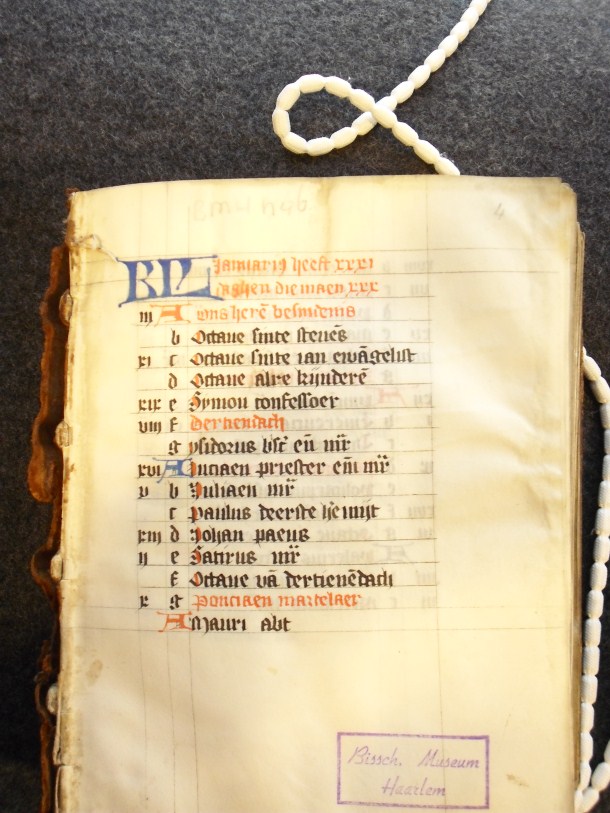 BMH h46
4
KL Januari9 heeft xxxi
daghen die maen xxx
iij A ons herē besnidenis
b Octaue sinte steuēs
xi c Octaue sinte ian ewāgelist
d Octaue alre kijnderē
xix e Symon confessoer
viij f Dertiendach
g ysidorus bſc̄ eñ mr̄
xvi A Luciaen priester eñ mr̄
v b Juliaen mr̄
c Paulus deerste h'emijt
xiij d Johan paeus
ij e Satirus mr̄
f Octaue vā dertienēdach
x g Ponciaen martelaer
A Mauri abt
Bissch. Museum
Haarlem